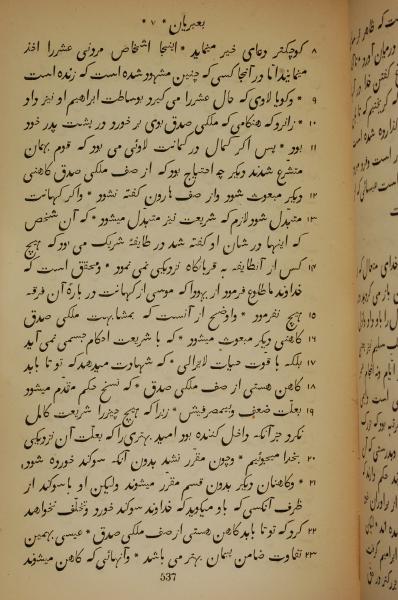 بعبریان * ۷ *
۸ کوچکتر دعای خیر مینماید * اینجا اشخاص مردنی عشررا اخذ
مینمایند اما در آنجا کسی که چنین مشهود شده است که زنده است
۹ * وگویا لاوی که حال عشررا می گیرد بوساطت ابراهیم او نیز داو
۱۰ * زانرو که هنگامی که ملکی صدق بوی بر خورد در پشت پدر خود
۱۱ بود * پس اگر کمال در کهانت لاوئی می بود که قوم بهمان
متشرع شدند دیگر چه احتیاج بود که از صف ملکی صدق کاهنی
۱۲ دیگر مبعوث شود واز صف هارون گفته نشود * واگر کهانت
۱۳ متبدل شود لازم که شریعت نیز متبدل میشود * که آن شخص
که اینها در شان او گفته شد در طایفهٔ شریک می بود که هیچ
۱۴ کس از آنطایفه به قربانگاه نزدیکی نمی نمود * ومحقق است که
خداوند ما طلوع فرمود از یهودا که موسی از کهانت در بارهٔ آن فرقه
۱۵ هیچ نفرمود * واوضح از آنست که بمشابهت ملکی صدق
۱۶ کاهنی دیگر مبعوث میشود * که با شریعت احکام جسمی نمی آید
۱۷ بلکه با قوت حیات لایزالی * که شهادت میدهد که تو تا بابد
۱۸ کاهن هستی از صف ملکی صدق * که نسخ حکم مقدم میشود
۱۹ بعلت ضعف وبیمصرفیش * زیرا که هیچ چیزرا شریعت کامل
نکرد جز آنکه داخل کننده بود امید بهتری را که بعلت آن نزدیکی
۲۰ بخدا میجوئیم * وچون مقرر نشد بدون آنکه سوگند خورده شود
۲۱ * وکاهنان دیگر بدون قسم مقرر میشوند ولیکن او با سوگند از
طرف آنکسی که باو میگوید که خداوند سوگند خورد وتخلف نخواهد
۲۲ کرد که تو تا بابد کاهن هستی از صف ملکی صدق * عیسی بهمین
۲۳ تفاوت ضامن پیمان بهتر می باشد * وآنهائی که کاهن میشوند
537